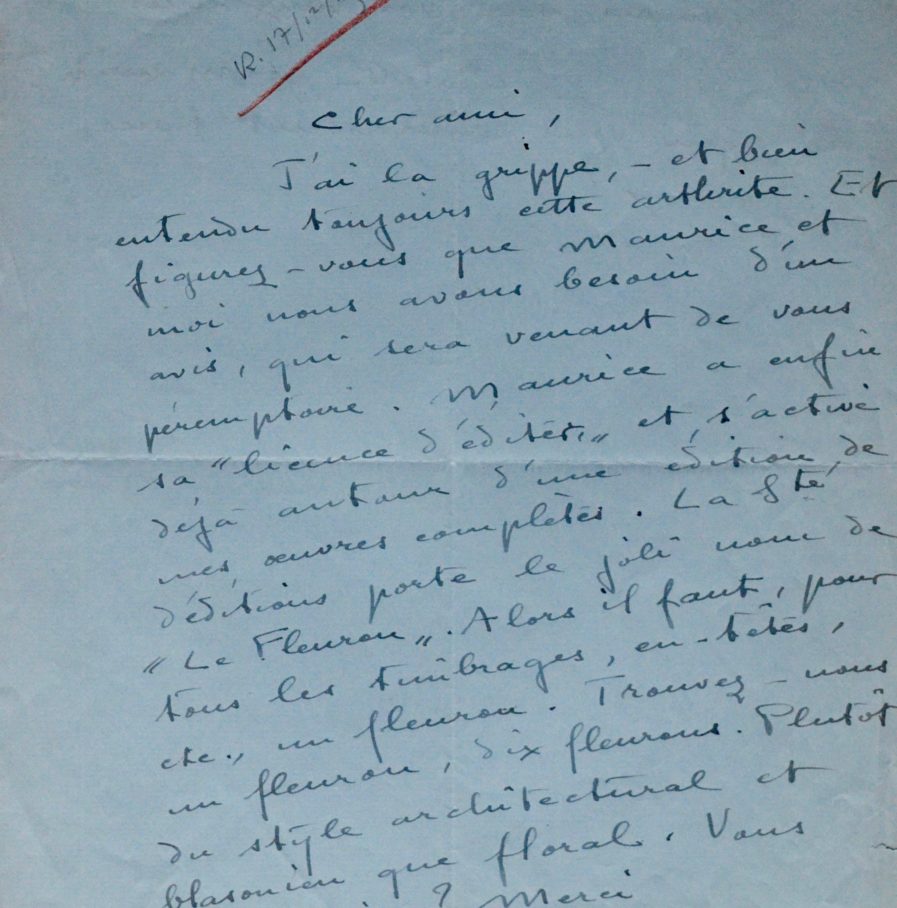 R. 17/12/
Cher ami,
J'ai la grippe, – et bien
entendu toujours cette arthrite. Et
figurez-vous que Maurice et
moi nous avons besoin d'un
avis, qui sera venant de vous
péremptoire. Maurice a enfin
sa "licence d'éditer" et s'active
déjà autour d'une édition de
mes œuvres complètes. La Sté
d'éditions porte le joli nom de
"Le Fleuron". Alors il faut, pour
tous les timbrages, en-têtes,
etc., un fleuron. Trouvez-nous
un fleuron, dix fleurons. Plutôt
du style architectural et
blasonien que floral. Vous
? Merci